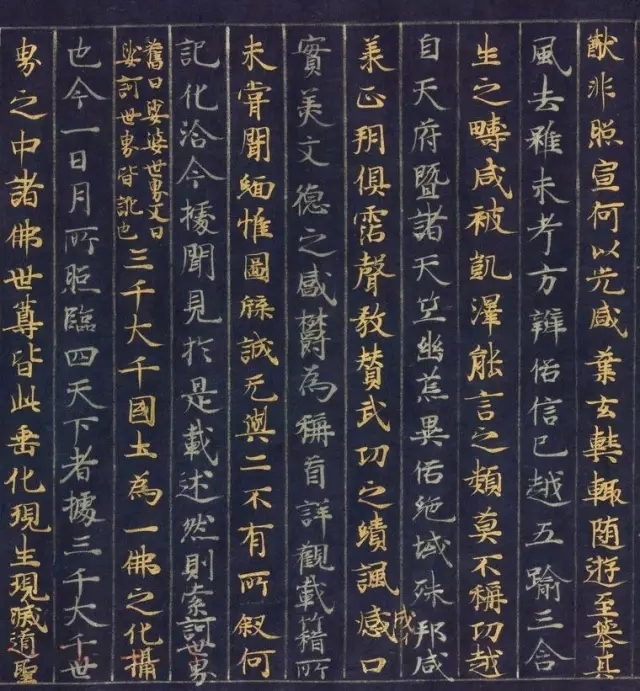 猷非照宣何以光盛葉玄奘輒随遊至舉其
風去雖未考方辨俗信已越五踰三含
生之疇咸被凱澤能言之類莫不稱功越
自天府暨諸天竺幽荒異俗絶域殊邦咸
承正朔俱霑聲教賛武功之績諷感成口
實美文德之盛欝為稱首詳觀載籍所
未甞聞緬惟圖牒誠无與二不有所叙何
記化洽今據聞見於是載述然則索訶世界
舊曰娑婆世界又曰
娑訶世界皆訛也
三千大千國土為一佛之化攝
也今一日月所照臨四天下者據三千大千世
界之中諸佛世尊皆此垂化現生現滅道聖